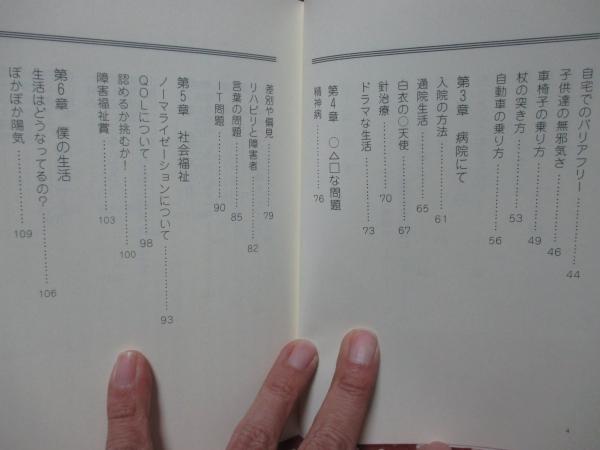 自宅でのバリアフリー……………44
子供達の無邪気さ……………46
車椅子の乗り方……………49
杖の突き方……………53
自動車の乗り方……………56
第3章 病院にて
入院の方法……………61
通院生活……………65
白衣の○天使……………67
針治療……………70
ドラマな生活……………73
第4章 ○△□な問題
精神病……………76
差別や偏見……………79
リハビリと障害者……………82
言葉の問題……………85
IT問題……………90
第5章 社会福祉
ノーマライゼーションについて……………93
QOLについて……………98
認めるか挑むか!……………100
障害福祉賞……………103
第6章 僕の生活
生活はどうなってるの?……………106
ぽかぽか陽気……………109
4